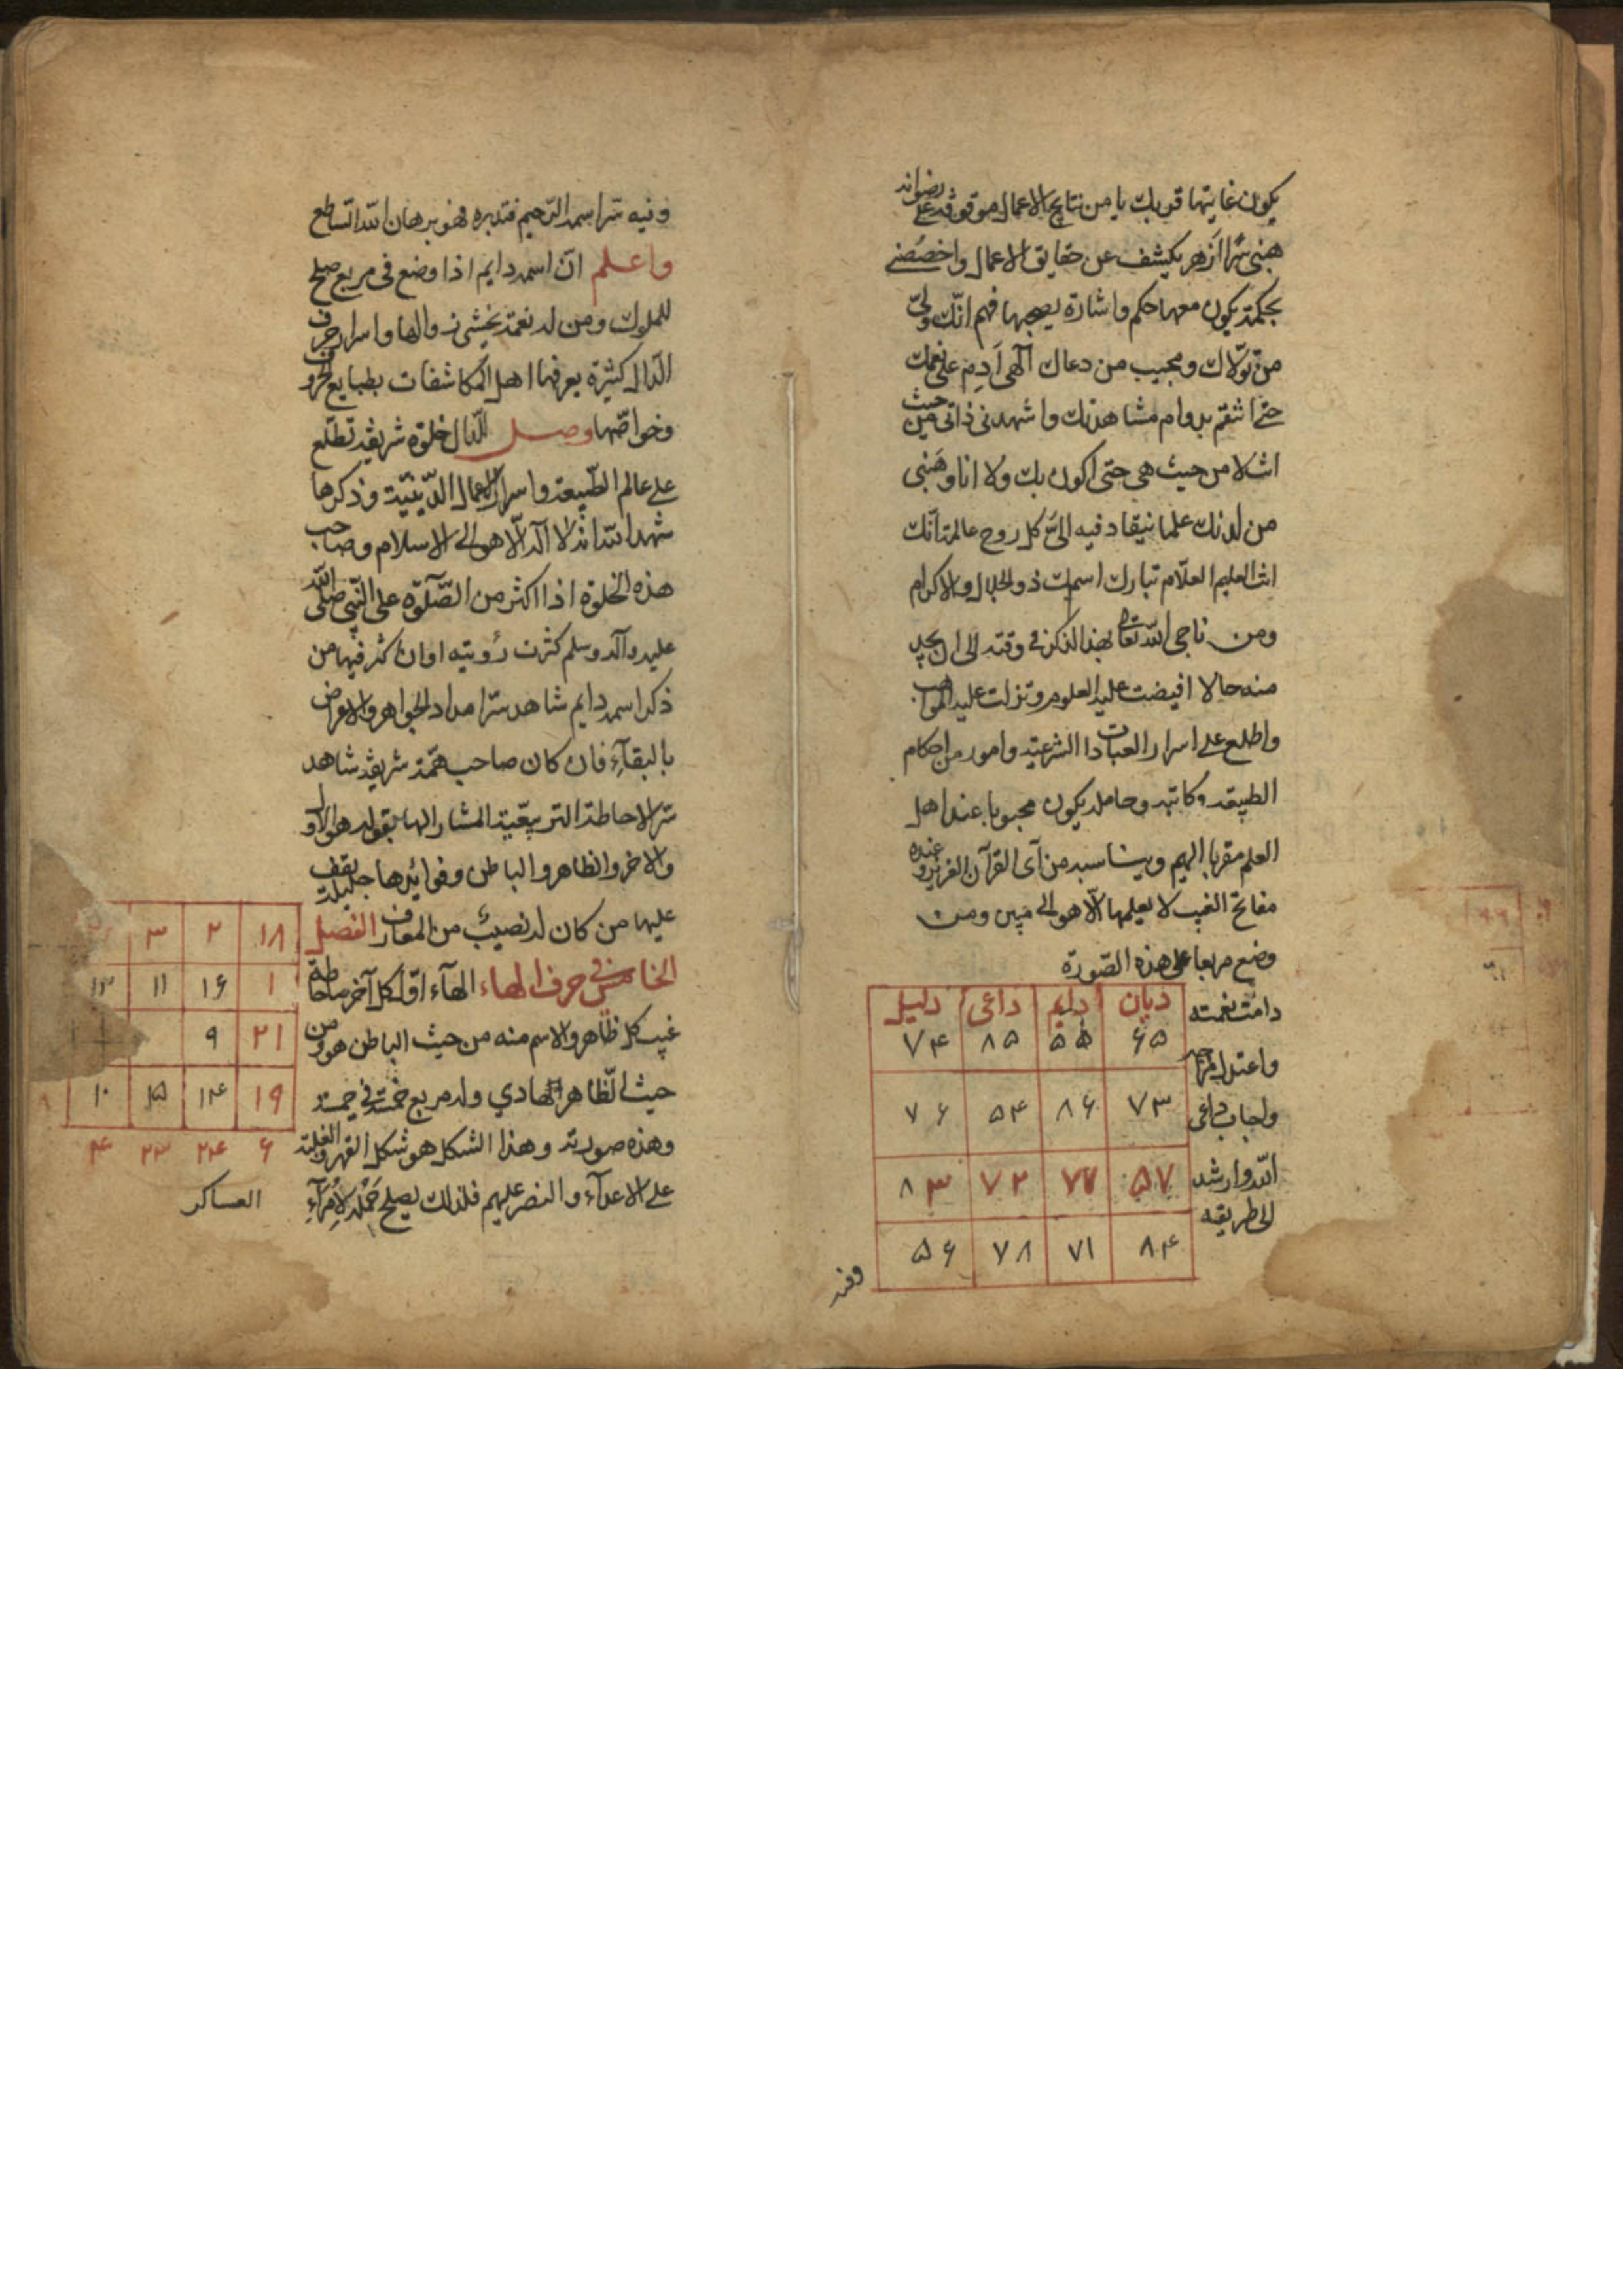 يكون غايتها قربك يا من نتايج الاعمال موقوفة على رضوانه
هبنى سرا ازهر يكشف عن حقايق الاعمال واخصصنى
بحكمة يكون معها حكم واشارة يصحبها فهم انّك ولىّ
من تولّاك ومجيب من دعاك الهى اَدِم علىّ نعمك
حتى اتنعّم بدوام مشاهدتك واشهدنى ذاتى من حيث
انت لا من حيث هى حتى اكون بك ولا انا وهَبنى
من لدنك علما ينقاد فيه الىّ كل روح عالمة انّك
انت العليم العلّام تبارك اسمك ذو الجلال والاكرام
ومن ناجى الله تعالى بهذا الذكر فى وقته الى ان يجد
منه حالا افيضت عليه العلوم وتنزلت عليه المواهب
واطلع على اسرار العبادات الشرعية وامور من احكام
الطبيعة وكاتبه وحامله يكون محبوبا عند اهل
العلم مقربا اليهم ويناسبه من آى القرآن العزيز وعنده
مفاتح الغيب لا يعلمها الّا هو الى مبين ومن
وضع مربعا على هذه الصّورة
دامت نعمته
واعتدل مزاجه
واجاب داعى
الله وارشد
الى طريقه
ديان دايم داعى دليل
۶۵ ۵۵ ۸۵ ۷۴
۷۳ ۸۶ ۵۴ ۷۶
۵۷ ۷۷ ۷۲ ۸۳
۸۴ ۷۱ ۷۸ ۵۶
وفيه
وفيه سرّ اسمه الرّحيم فتدبره فهو برهان الله السّاطع
واعلم انّ اسمه دايم اذا وضع فى مربع صلح
للملوك ومن له نعمة يخشى زوالها واسرار حرف
الدّال كثيرة يعرفها اهل المكاشفات بطبايع الحروف
وخواصّها وصل للدّال خلوة شريفة تطلّع
على عالم الطّبيعة واسرار الاعمال الدّينيّة وذكرها
شهد الله انه لا اله الّا هو الى الاسلام وصاحب
هذه الخلوة اذا اكثر من الصّلوة على النّبى صلّى الله
عليه وآله وسلم كثرت رؤيته اوان كثر فيها من
ذكر اسمه دايم شاهد سرّ امداد الجواهر والاعراض
بالبقآء فان كان صاحب همّة شريفة شاهد
سرّ الاحاطة التربيعيّة المشار اليها بقوله هو الاول
والاخر والظاهر والباطن وفوائدها جليلة يقف
عليها من كان له نصيبٌ من المعارف الفصل
الخامس فى حرف الهاء الهآء اوّل كل آخر
غيب كل ظاهر والاسم منه من حيث الباطن هو ومن
حيث الظّاهر الهادي وله مربع خمسة فى خمسة
وهذه صورته وهذا الشكل هو شكل القهر والغلبة
على الاعدآء والنصر عليهم فلذلك يصلح حَمْلُه لاُمرَآءِ
العساكر
۱۸ ۲ ۳
۱ ۱۶ ۱۱ ۱۳
۲۱ ۹
۱۹ ۱۴ ۱۵ ۱۰ ۸
۶ ۲۴ ۲۳ ۴